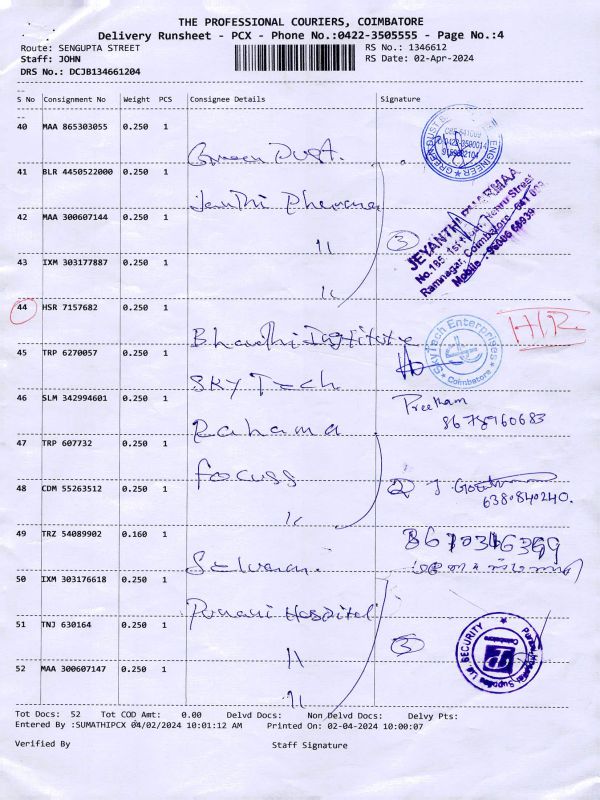 THE PROFESSIONAL COURIERS, COIMBATORE
Delivery Runsheet - PCX - Phone No.:0422-3505555 - Page No.:4
Route: SENGUPTA STREET RS No.: 1346612
Staff: JOHN RS Date: 02-Apr-2024
DRS No.: DCJB134661204
S No Consignment No Weight PCS Consignee Details Signature
40 MAA 865303055 0.250 1 Green Dust.
ENGINEER
41 BLR 4450522000 0.250 1 Jenthi Pharma
JEYANTHI PHARMAA
Ramnagar, Coimbatore
42 MAA 300607144 0.250 1 " 3
43 IXM 303177887 0.250 1 "
44 HSR 7157682 0.250 1 Bharathi Institute HR
45 TRP 6270057 0.250 1 SKY Tech
SkyTech Enterprises
Coimbatore
46 SLM 342994601 0.250 1 Rahama Preetham
47 TRP 607732 0.250 1 focuss
48 CDM 55263512 0.250 1 " 2
6380840240.
49 TRZ 54089902 0.160 1 Selvarani
50 IXM 303176618 0.250 1 Hospital
51 TNJ 630164 0.250 1 " 3
SECURITY
52 MAA 300607147 0.250 1 "
Tot Docs: 52 Tot COD Amt: 0.00 Delvd Docs: Non Delvd Docs: Delvy Pts:
Entered By :SUMATHIPCX 04/02/2024 10:01:12 AM Printed On: 02-04-2024 10:00:07
Verified By Staff Signature